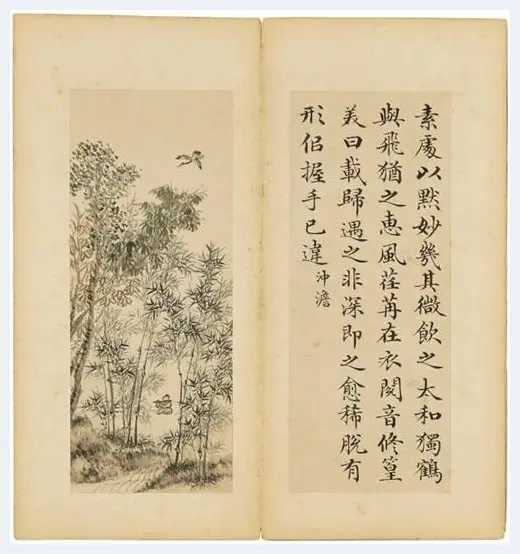 素處以默妙幾其微飲之太和獨鶴
與飛猶之惠風荏苒在衣閱音修篁
美曰載歸遇之非深即之愈稀脫有
形侣握手已違沖澹